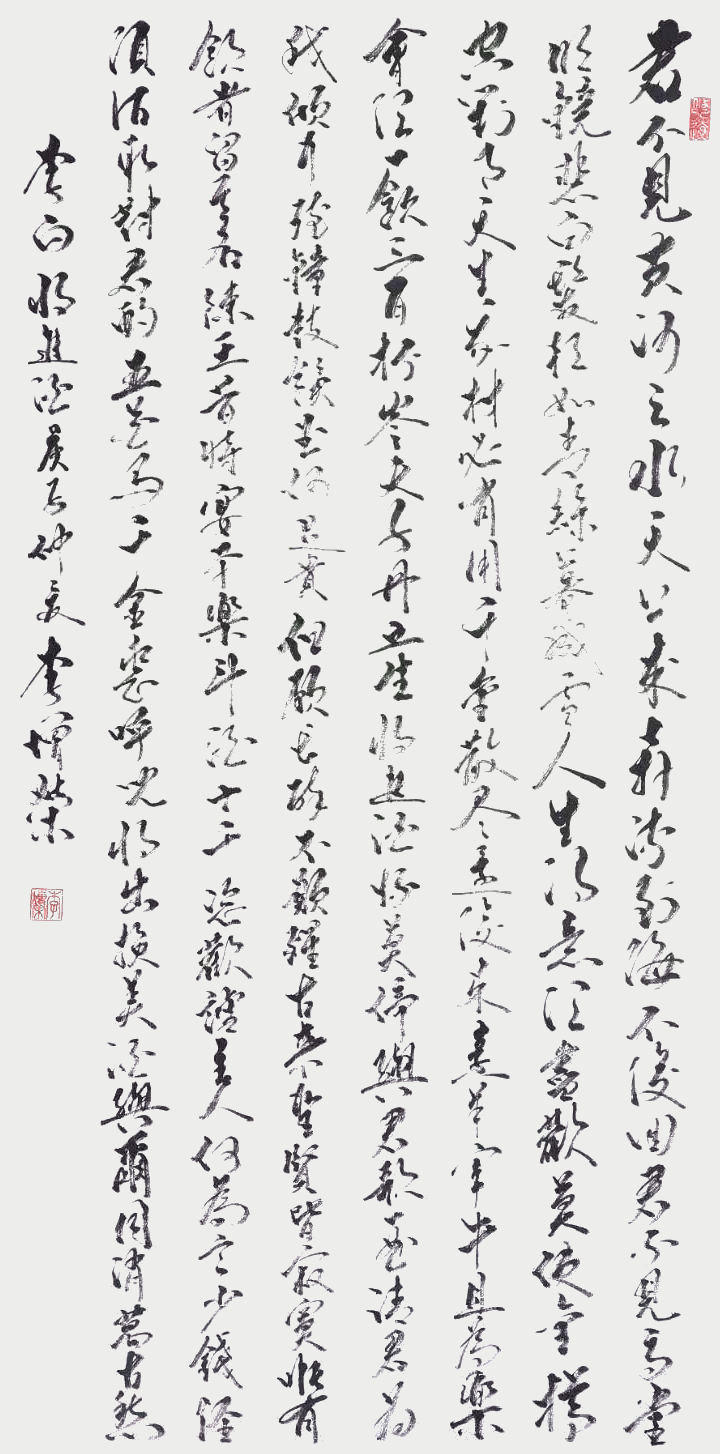 君不見黃河之水天上來奔流到海不復回君不見高堂
明鏡悲白髮朝如青絲暮成雪人生得意須盡歡莫使金樽
空對月天生我材必有用千金散盡還復來烹羊宰牛且為樂
會須一飲三百杯岑夫子丹丘生將進酒杯莫停與君歌一曲請君為
我傾耳聽鐘鼓饌玉何足貴但願長醉不願醒古來聖賢皆寂寞惟有
飲者留其名陳王昔時宴平樂斗酒十千恣歡謔主人何為言少錢徑
須沽取對君酌五花馬千金裘呼兒將出換美酒與爾同消萬古愁
李白將進酒癸巳仲夏李增榮